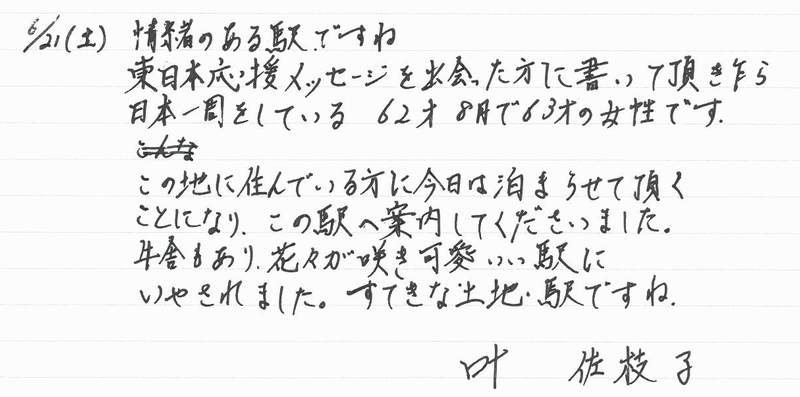 6/21(土) 情緒のある駅ですね
東日本応援メッセージを出会った方に書いて頂き乍ら
日本一周をしている 62才 8月で63才の女性です.
こんな
この地に住んでいる方に今日は泊まらせて頂く
ことになり、この駅へ案内してくださいました。
牛舎もあり、花々が咲き可愛いい駅に
いやされました。すてきな土地・駅ですね.
叶 佐枝子